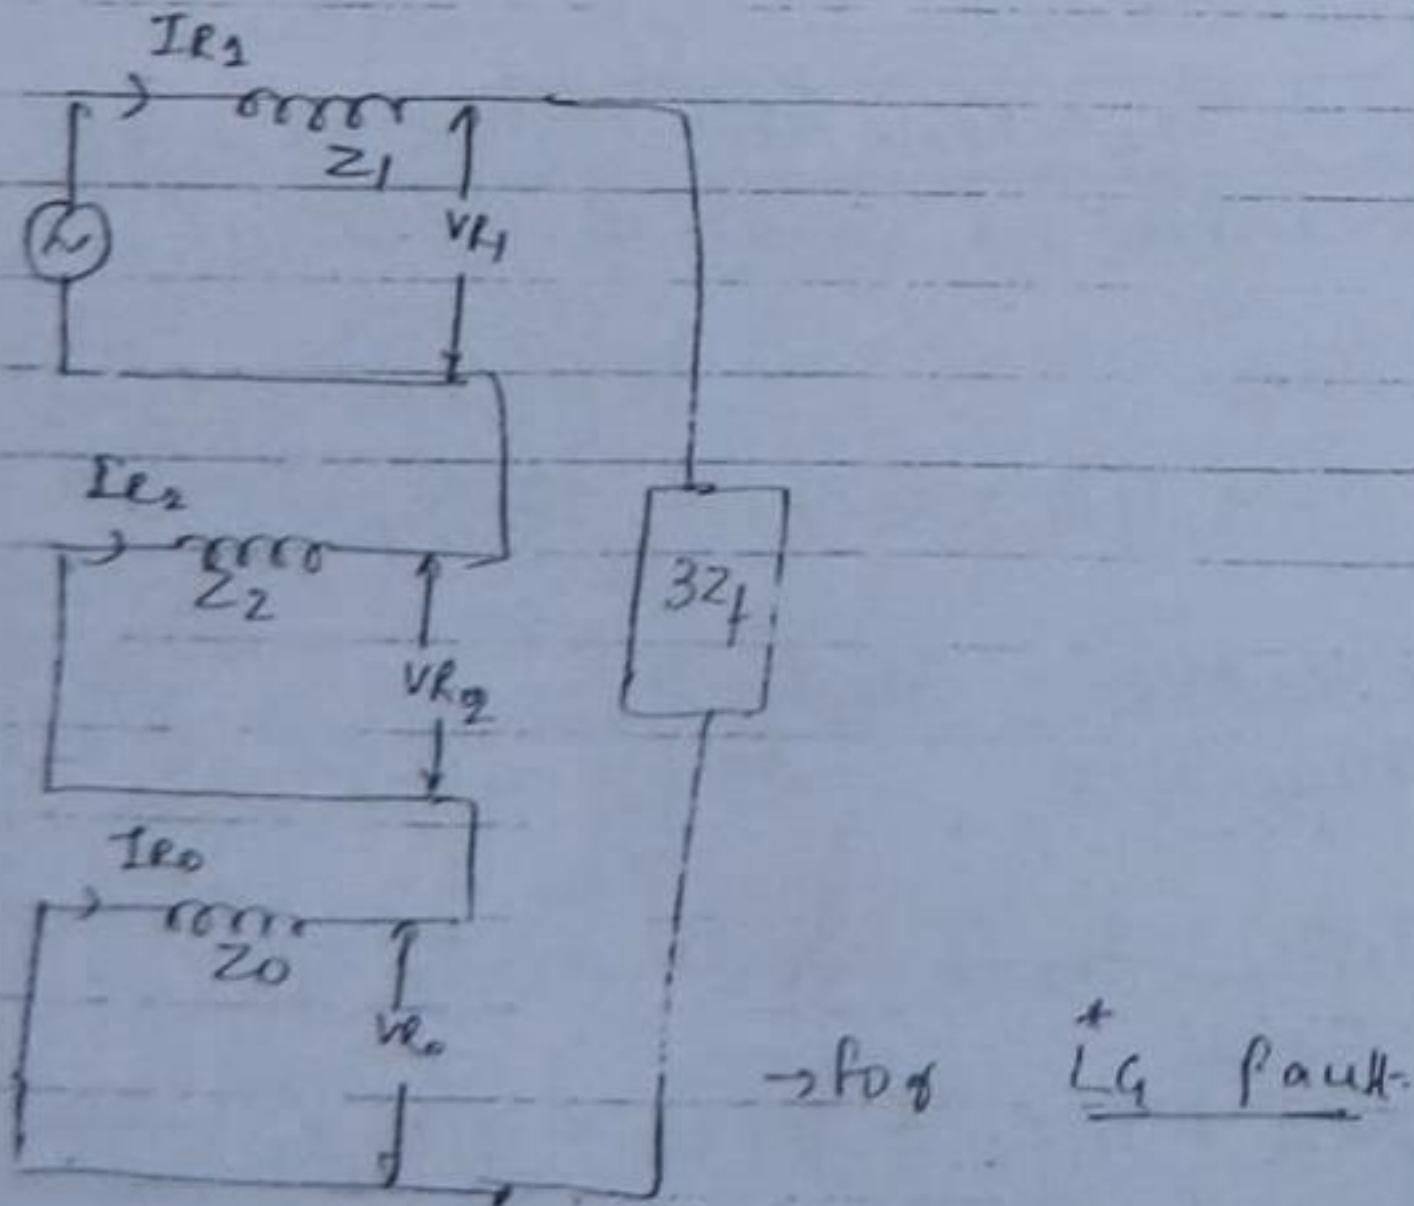 IR1
Z1
VR1
IR2
Z2
VR2
3Zf
IR0
Z0
VR0
→ for LG fault.